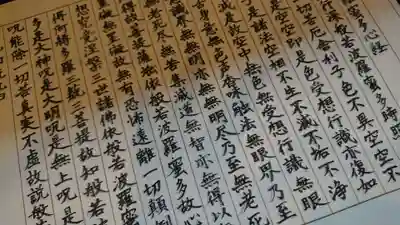 多心經
深般若波羅蜜多時照
切苦厄舍利子色不異空空不
是空空即是色受想行識亦復如
是諸法空相不生不滅不垢不淨
減是故空中無色無受想行識無眼
舌身意無色聲香味觸法無眼界乃至
無無明亦無無明盡乃至無老死
集滅道無智亦無得以
得故菩提薩埵依般若波羅蜜多故心
無罣礙故無有恐怖遠離一切顛倒
想究竟涅槃三世諸佛依般若波羅蜜
得阿耨多羅三藐三菩提故知般若
多是大神呪是大明呪是無上呪是
呪能除一切苦真實不虛故說般若